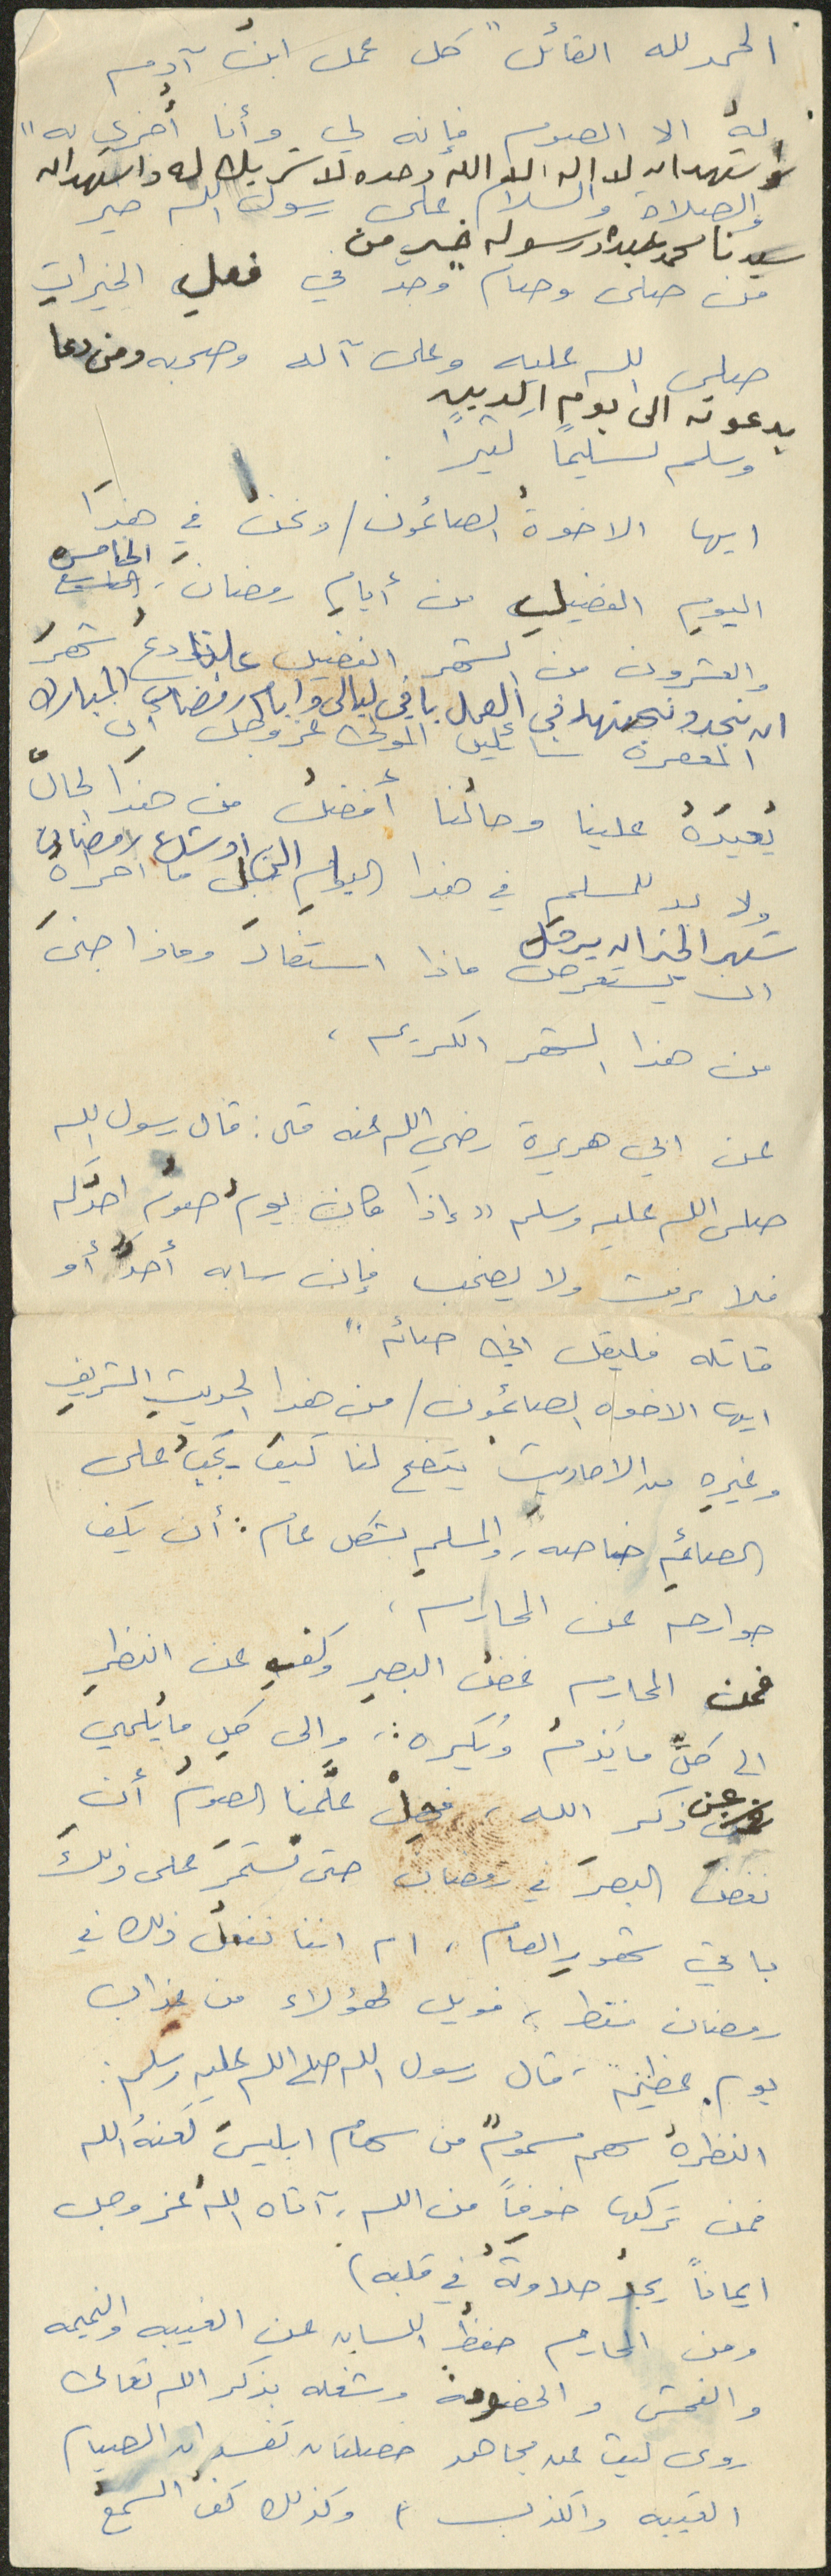 الحمد لله القائل " كل عمل ابن آدم
له الا الصوم فإنه لي وأنا أجزي به "
واشهد ان لا اله الا الله وحده لا شريك له واشهد ان
والصلاة والسلام على رسول الله خير
سيدنا محمد عبده ورسوله خير من
من صلى وصام وجدّ في فعل الخيرات
صلى الله عليه وعلى آله وصحبه ومن دعا
بدعوته الى يوم الدين
وسلم تسليماً كثيراً .
ايها الاخوة الصائمون / ونحن في هذا
الخامس
اليوم الفضيل من أيام رمضان،
والعشرون من الشهر الفضيل علينا شهر
ان نجد ونجتهد في العمل باقي ليالي وايام رمضان المبارك
المغفرة سائلين المولى عز وجل ان
يُعيدَهُ علينا وحالُنا أفضلُ من هذا الحال
اوشك رمضان
ولا بد للمسلم في هذا اليوم
شهر الخير ان يرحل
ان يستعرض ماذا استفاد وماذا جنى
من هذا الشهر الكريم ،
عن ابي هريرة رضي الله عنه قال : قال رسول الله
صلى الله عليه وسلم " إذا كان يومُ صومُ احدكم
فلا يرفث ولا يصخب فإن سابه أحدٌ أو
قاتله فليقل اني صائم "
ايها الاخوه الصائمون / من هذا الحديث الشريف
وغيرهِ من الاحاديث يتضح لنا كيف يجبُ على
الصائمِ خاصه، والمسلمِ بشكل عام : أن يكف
جوارحه عن المحارم ،
فمن المحارم غضُ البصرِ وكفهِ عن النظرِ
الى كلِّ ما يُذمُ ويُكره ، والى كلِ ما يُلهي
عن ذكر الله ، فهلْ علَّمنا الصومُ أن
نغضَ البصرَ في رمضان حتى نستمرَ على ذلكَ
باقي شهورِ العام ، ام اننا نفعلُ ذلك في
رمضان فقط ، فويل لهؤلاء من عذاب
يوم عظيم ، قال رسول الله صلى الله عليه وسلم :
النظرةُ سهم مسمومٌ من سهام ابليسَ لعنهُ الله
فمن تركها خوفاً من الله ، آتاه اللهُ عز وجل
ايماناً يجدُ حلاوتهُ في قلبه )
ومن المحارم حفظُ اللسان عن الغيبه والنميمه
والفحش والخصومة وشغله بذكر الله تعالى
روى ليث عن مجاهد خصلتان تفسدان الصيام
الغيبه والكذب ) وكذلك كفُ السمعَ